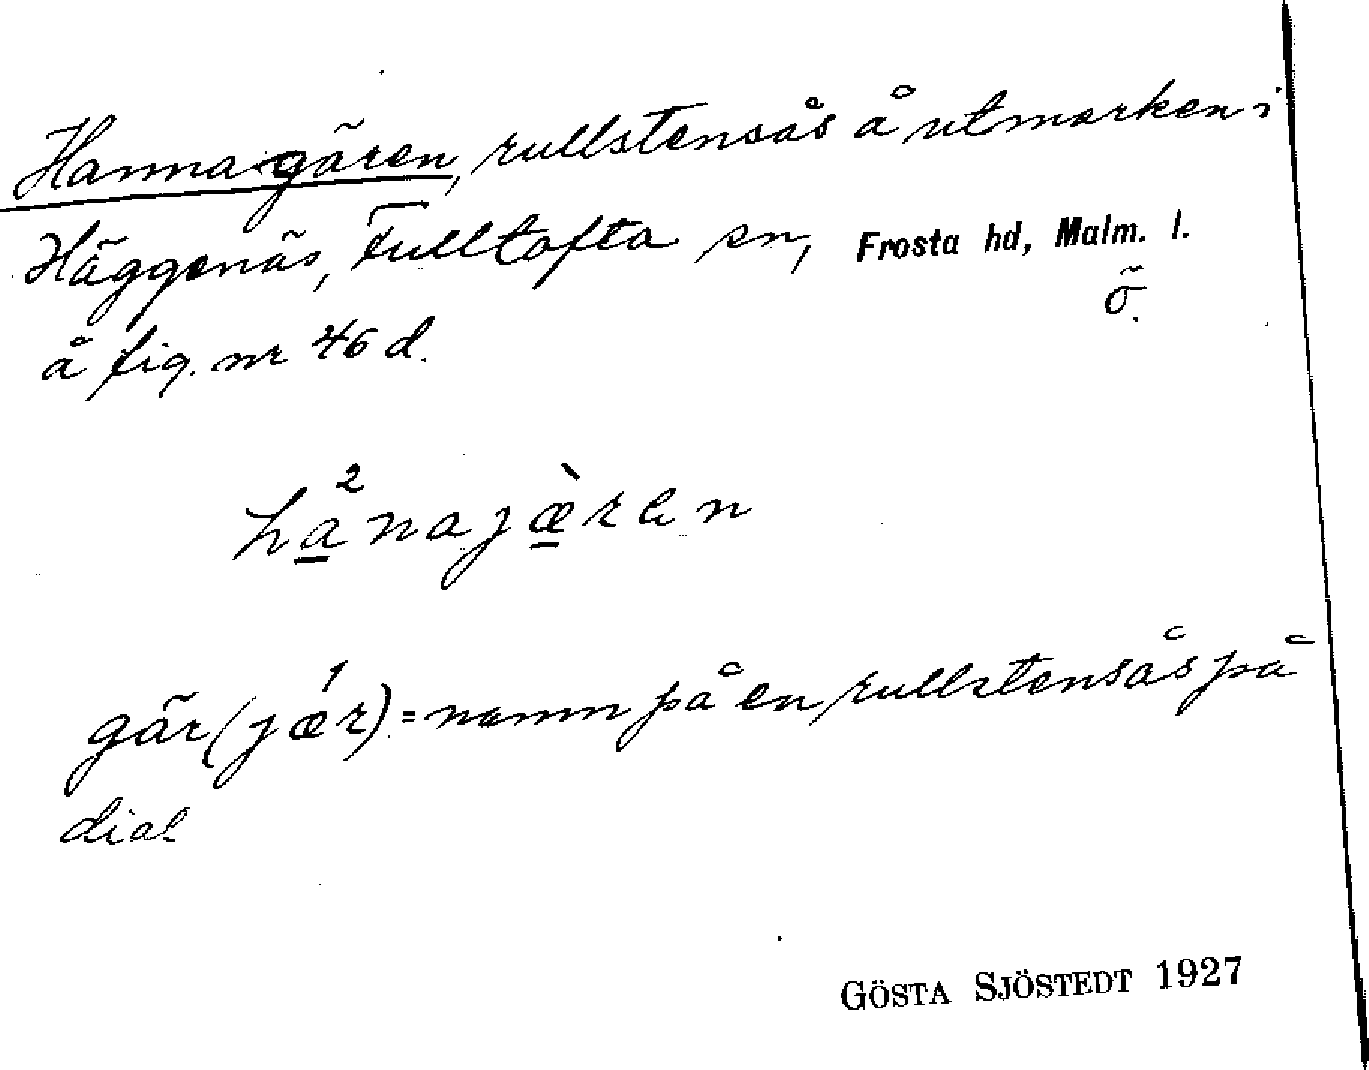 Hannagären, rullstensås å utmarken i
Häggenäs, Fulltofta sn, Frosta hd, Malm. l.
ö.
å fig. nr 46 d.
ha²najæ̀ren
gär (jæ¹r) = namn på en rullstensås på
dial
GÖSTA SJÖSTEDT 1927